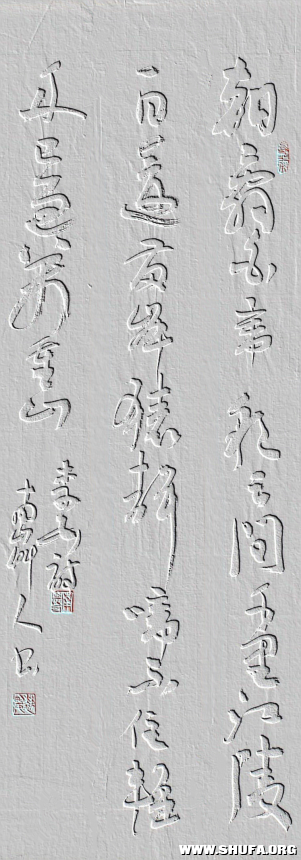 朝辭白帝彩云間千里江陵
一日還兩岸猿聲啼不住輕
舟已過萬重山
李白詩
人书
WWW.SHUFA.ORG